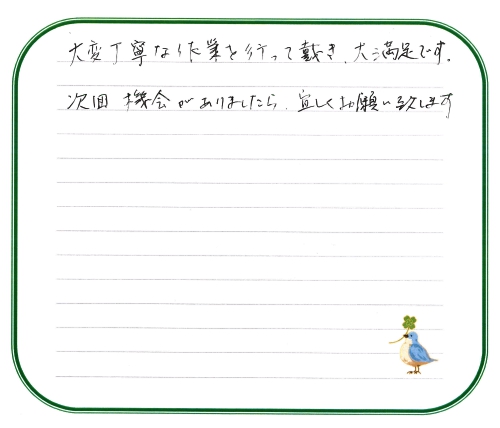 大変丁寧な作業を行って戴き、大満足です。
次回 機会がありましたら、宜しくお願い致します